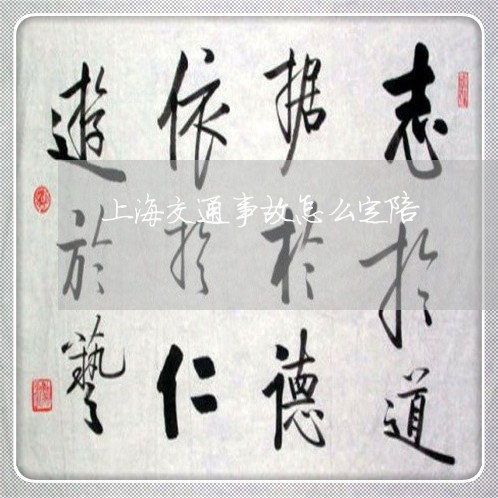 志於道
据於德
依於仁
遊於藝
上海交通事故怎么定陪